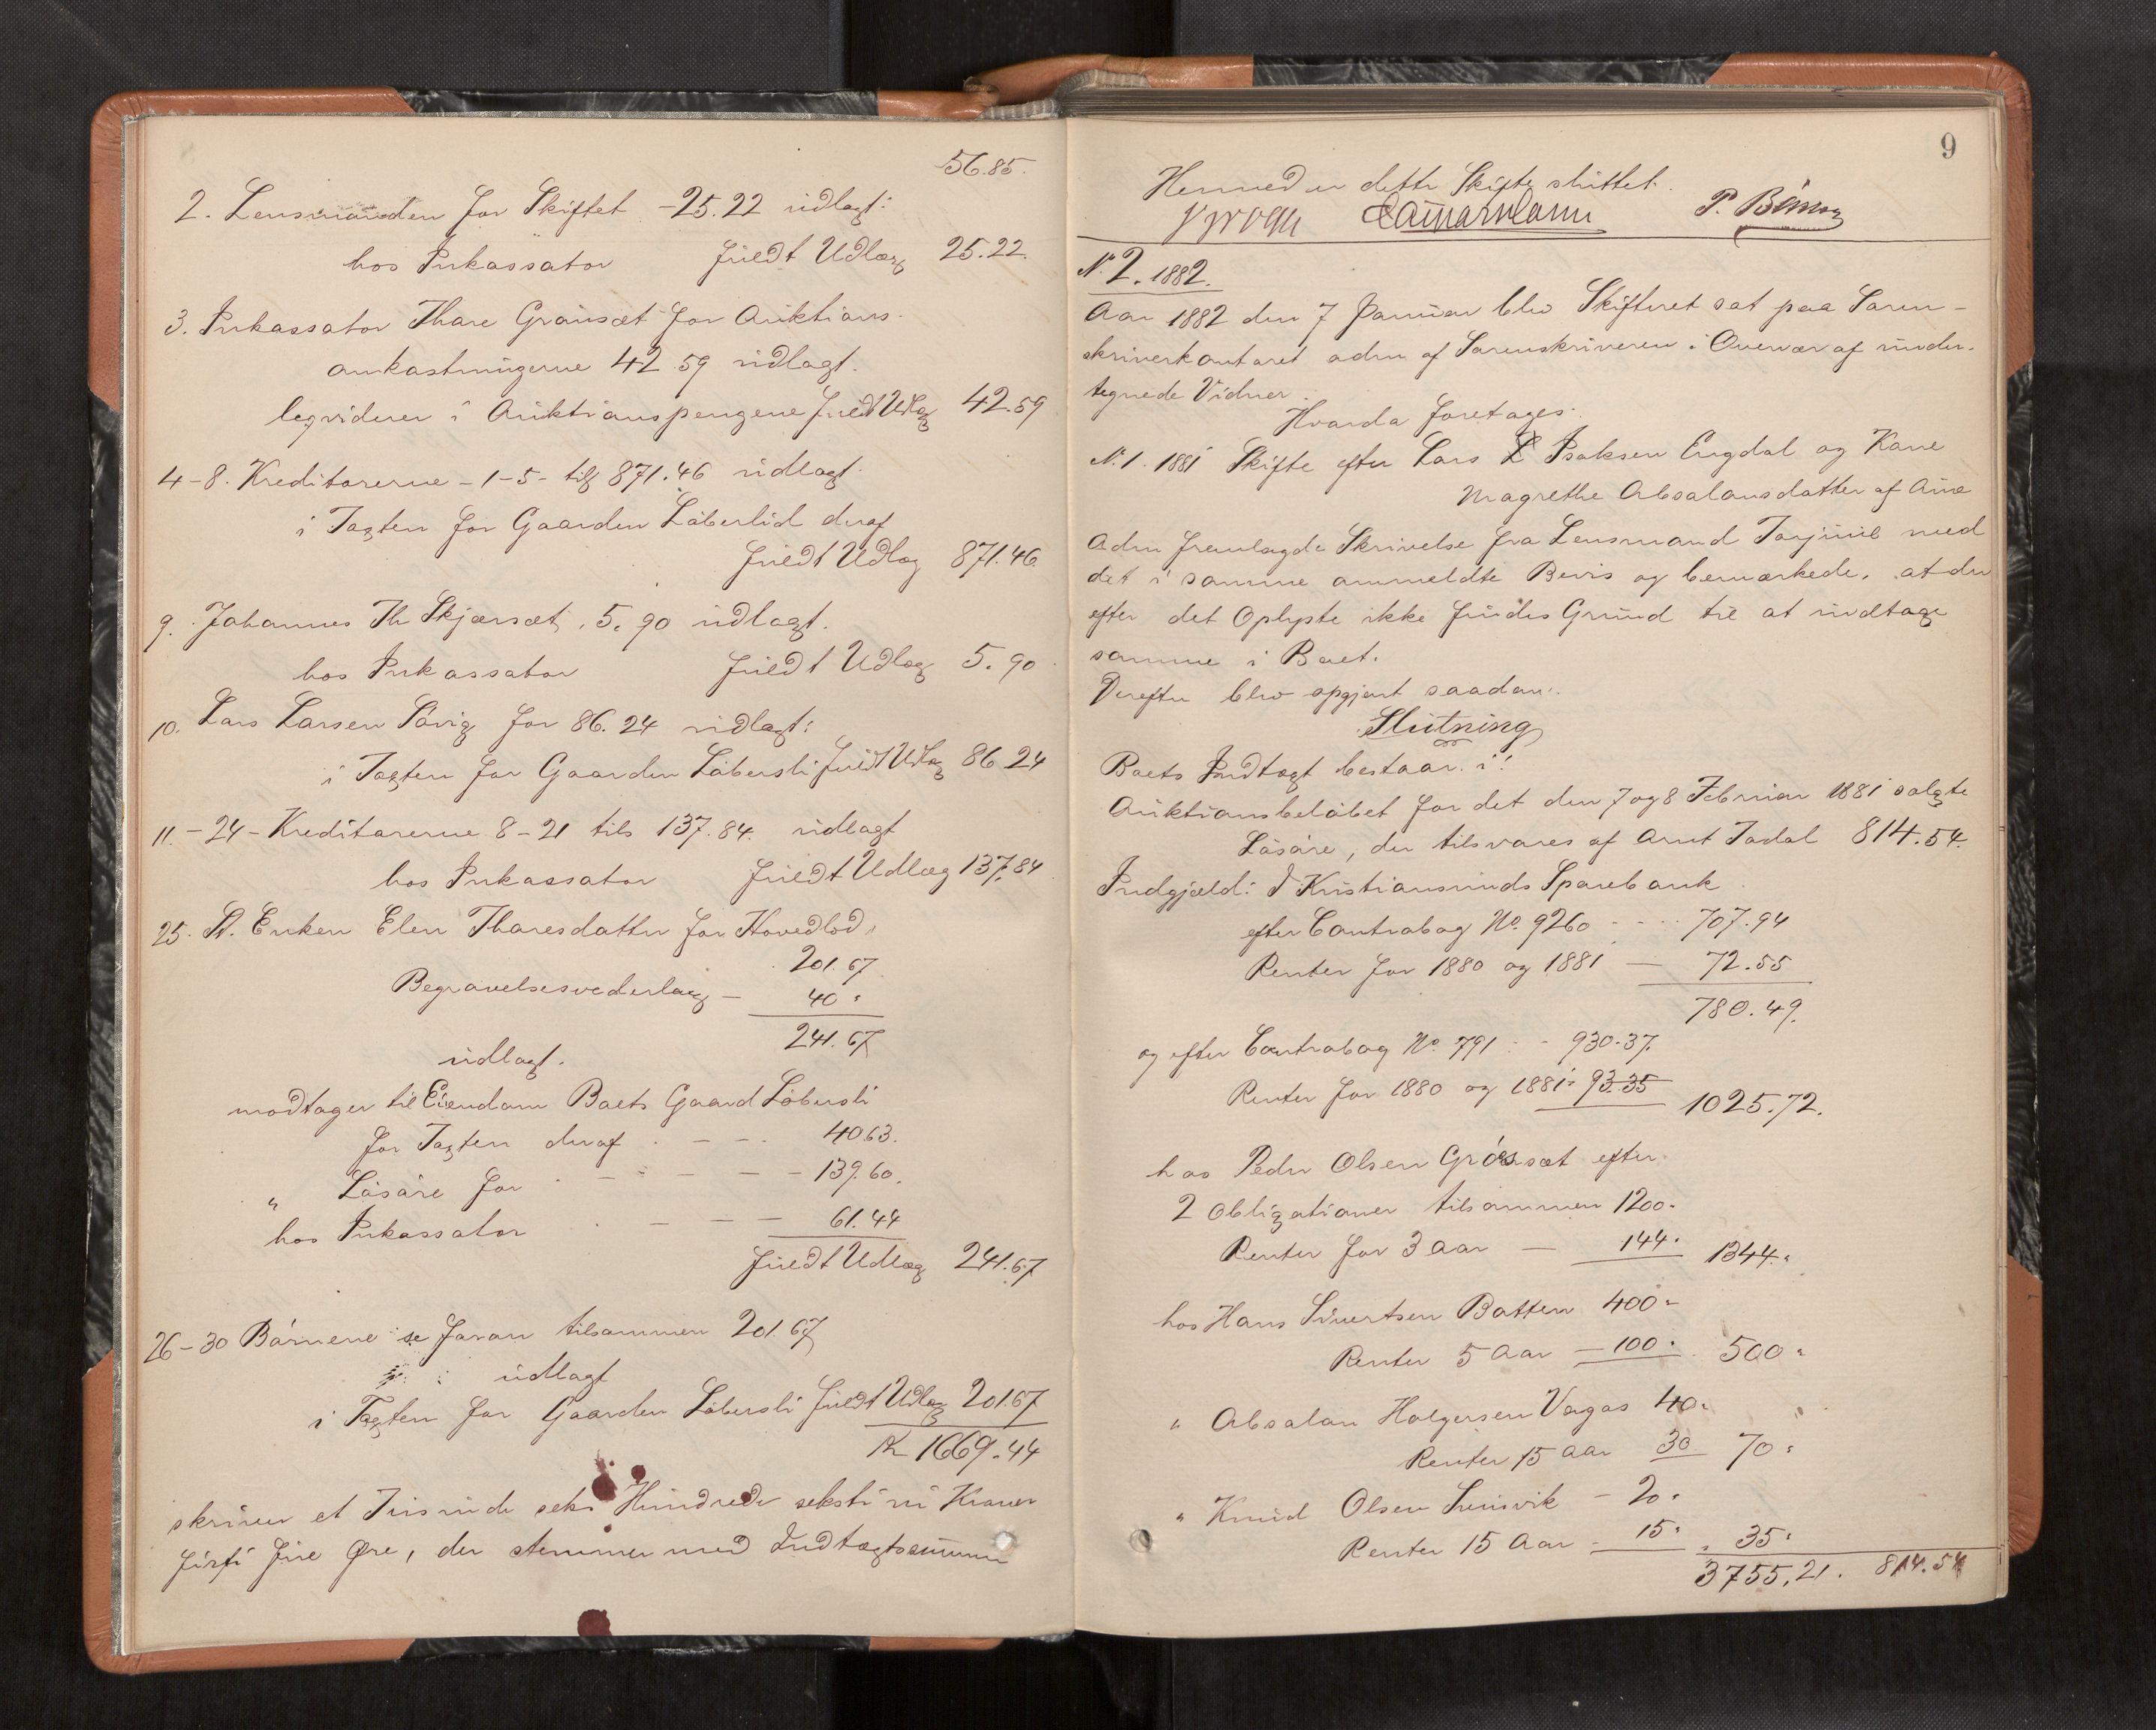 56.85.
2. Lensmanden for Skiftet - 25.22 udlagt:
hos Inkassator fuldt Udlæg 25.22.
3. Inkassator Thore Gransæt for Auktions-
omkostningerne 42.59 udlagt.
leqviderer i Auktionspengene fuldt Udlæg 42.59
4-8. Kreditorerne - 1-5- tils 871.46 udlagt
i Taxten for Gaarden Löberlid deraf
fuldt Udlæg 871.46
9. Johannes Th Skjærsæt, 5.90 udlagt.
hos Inkassator fuldt Udlæg 5.90
10. Lars Larsen Sövig for 86.24 udlagt:
i Taxten for Gaarden Löbersli fuldt Udlæg 86 24
11.-24- Kreditorerne 8-21 tils 137.84. udlagt
hos Inkassator fuldt Udlæg 137.84
25. Enken Elen Thoresdatter for Hovedlod,
201.67
Begravelsesvederlag - 40 "
241.67
udlagt.
modtager til Eiendom Boets Gaard Löbersli
for Taxten deraf . - - . 40.63.
" Lösöre for - - - - 139.60.
hos Inkassator . - - - 61.44
fuldt Udlæg 241.67
26-30 Börnene se foran tilsammen 201.67
udlagt
i Taxten for Gaarden Löbersli fuldt Udlæg 201.67
Kr 1669.44
skriver et Tusinde seks Hundrede seksti ni Kroner
firti fire Øre, der stemmer med Indtægtssummen
9
Hermed er dette Skifte sluttet.
P.
No 2. 1882.
Aar 1882 den 7 Januar blev Skifteret sat paa Soren-
skriverkontoret adm af Sorenskriveren i Overvær af under-
tegnede Vidner.
Hvorda foretages:
No 1. 1881 Skifte efter Lars L Isaksen Engdal og Kone
Magrethe Absalonsdatter af Aure
Adm fremlagde Skrivelse fra Lensmand Torjuul med
det i samme anmeldte Bevis og bemærkede, at der
efter det Oplyste ikke findes Grund til at indtage
samme i Boet.
Derefter blev opgjort saadan:
Slutning
Boets Indtægt bestaar i:
Auktionsbelöbet for det den 7 og 8 Februar 1881 solgte
Lösöre, der tilsvares af Arnt Todal 814.54.
Indgjæld: I Kristiansunds Sparebank
efter Contrabog No. 9260 - - - - 707.94
Renter for 1880 og 1881 - 72.55
780.49.
og efter Contrabog No. 791 - - 930.37.
Renter for 1880 og 1881 - 93.35 1025.72.
hos Peder Olsen Grönsæt efter
2 Obligationer tilsammen 1200-
Renter for 3 Aar - 144. 1344."
hos Hans Sivertsen Botten 400 "
Renter 5 Aar - 100 . 500 "
" Absalon Holgersen Vagos 40 "
Renter 15 Aar 30 70 "
" Knud Olsen - 20 "
Renter 15 Aar - 15 " 35 "
3755.21. 814.54